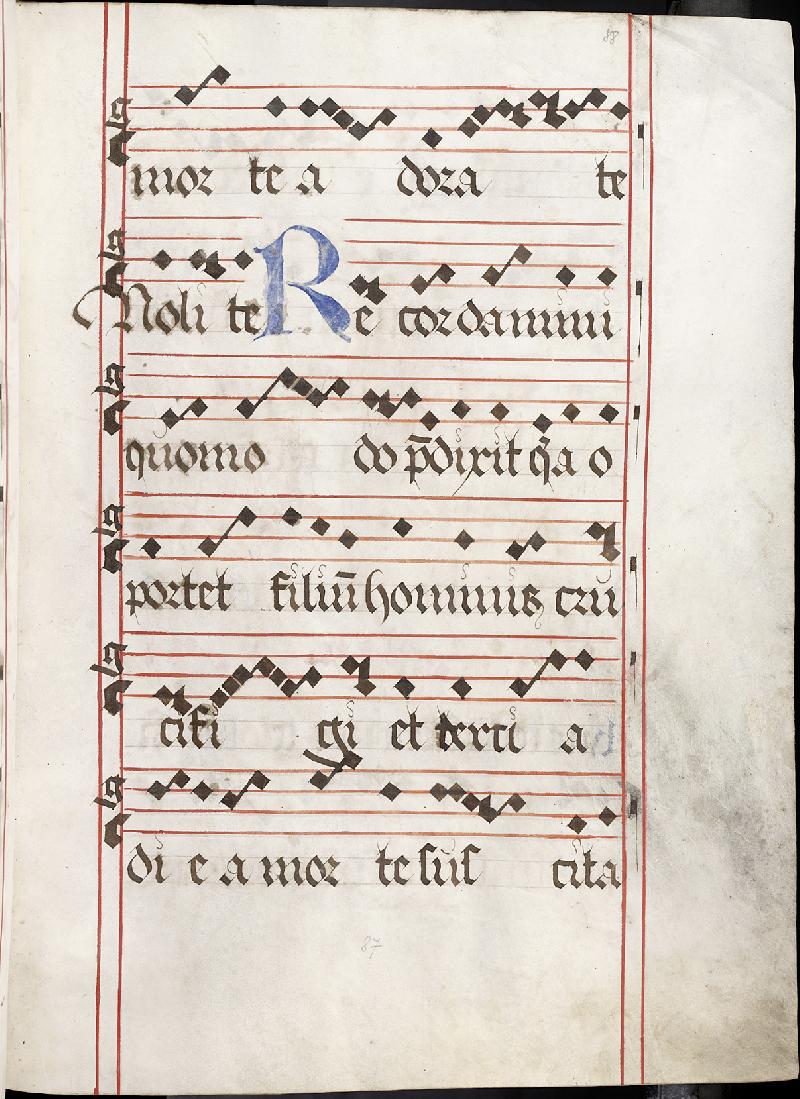 88
mor te a dora te
Noli te Re cordamini
quomo do p̄dixit q̄a o
portet filiū hominis cru
cifi gi et terci a
di e a mor te sus cita
87